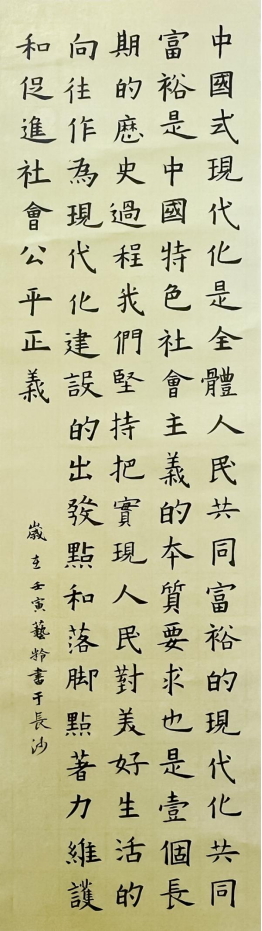 中國式現代化是全體人民共同富裕的現代化共同
富裕是中國特色社會主義的本質要求也是壹個長
期的歷史過程我們堅持把實現人民對美好生活的
向往作為現代化建設的出發點和落脚點著力維護
和促進社會公平正義
歲在壬寅藝粦書于長沙